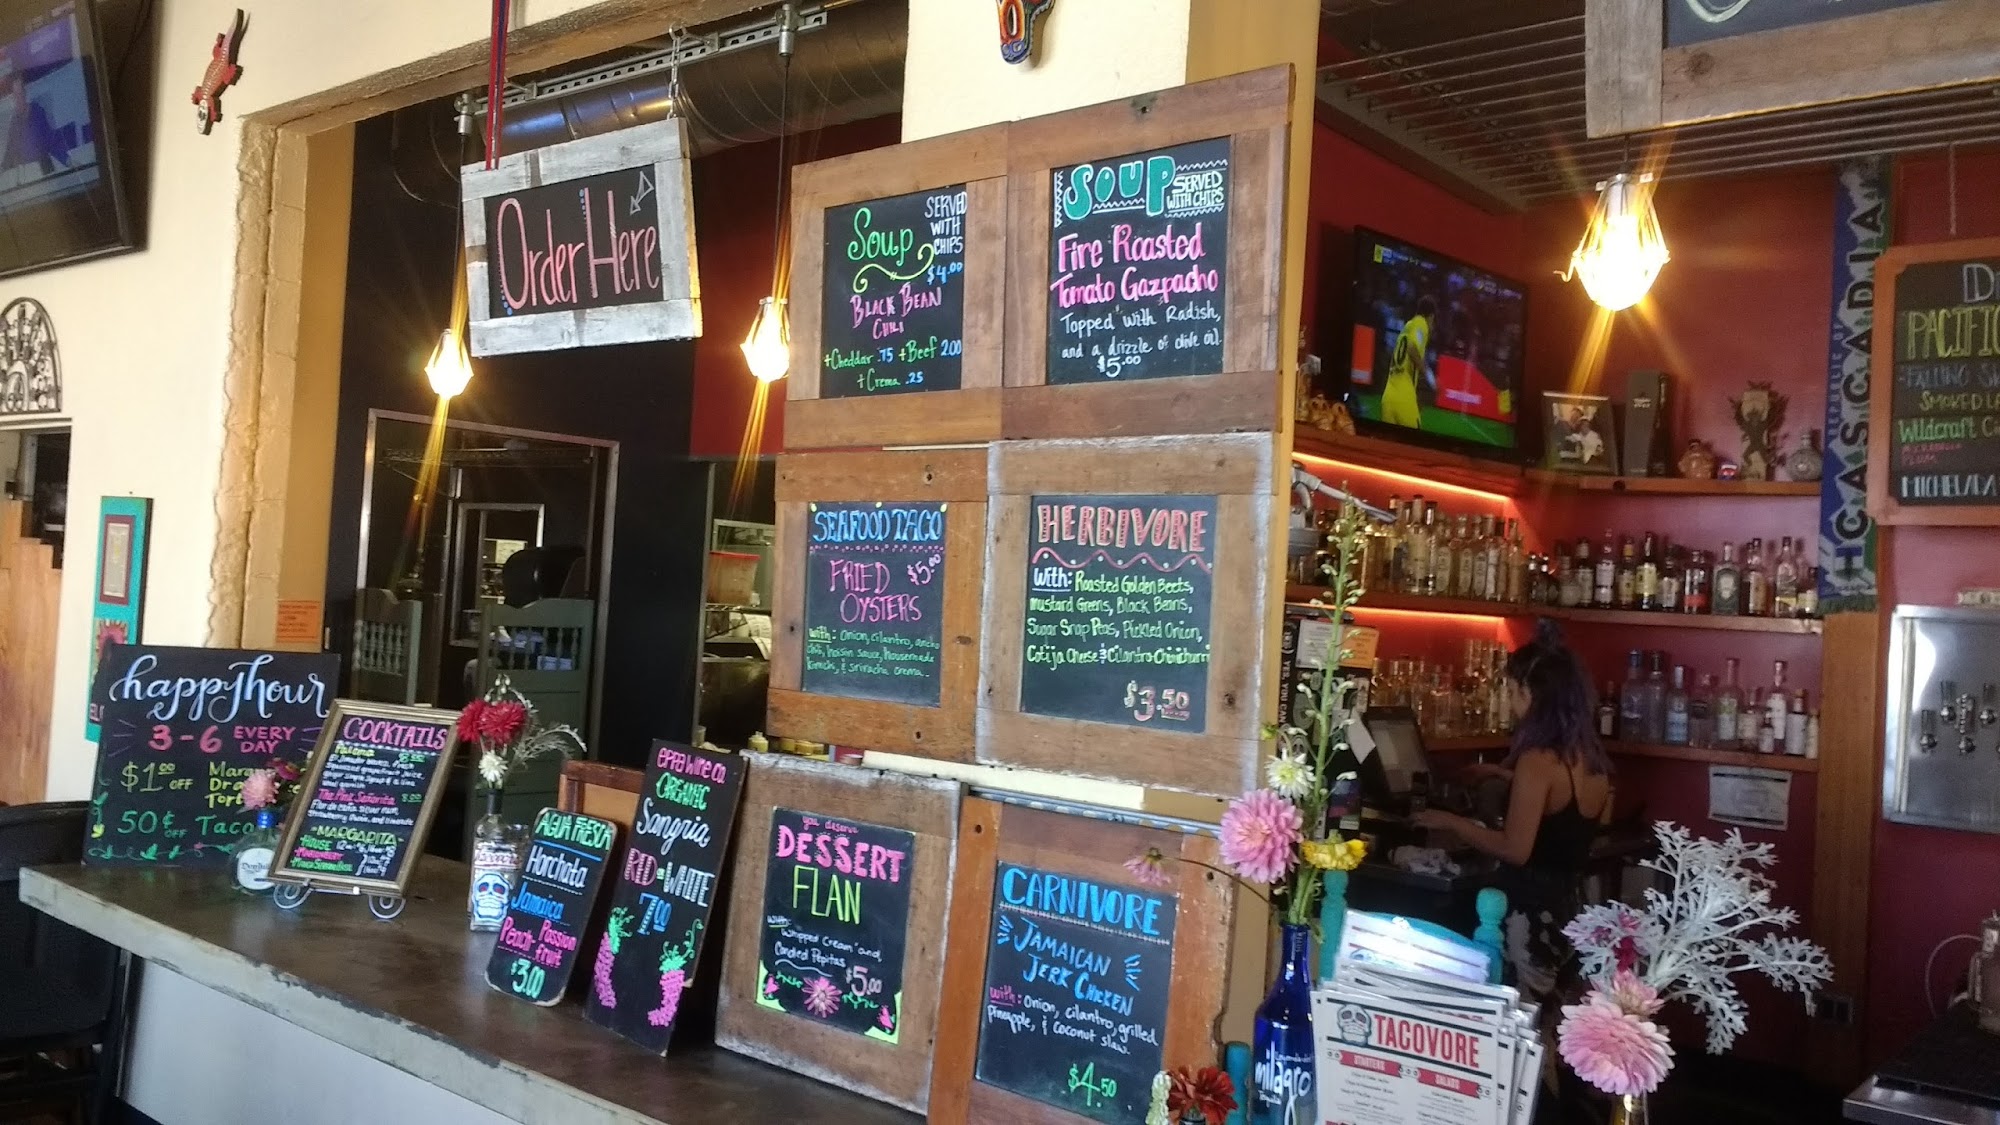 Order Here
Soup
SERVED
WITH
CHIPS
$4.00
BLACK BEAN
CHILI
+Cheddar .75 +Beef 2.00
+Crema .25
SOUP
SERVED
WITH CHIPS
Fire Roasted
Tomato Gazpacho
Topped with Radish,
and a drizzle of olive oil.
$5.00
SEAFOOD TACO
FRIED $5.00
OYSTERS
With: onion, cilantro, ancho
chili, hoisin sauce, housemade
kimchi, & sriracha crema.
HERBIVORE
With: Roasted Golden Beets,
Mustard Greens, Black Beans,
Sugar Snap Peas, Pickled Onion,
Cotija Cheese & Cilantro-Chimichurri
$3.50
happy hour
3-6 EVERY
DAY
$1.00 OFF
50¢ OFF Taco
COCKTAILS
Paloma
The Pink Señorita 8.00
Strawberry
MARGARITA
HOUSE
AGUA FRESCA
Horchata
Jamaica
Passion
Peach-fruit
$3.00
EPPA WINE CO.
ORGANIC
Sangria
RED or WHITE
7.00
you deserve
DESSERT
FLAN
With:
Whipped Cream and
Candied Pepitas
$5.00
CARNIVORE
JAMAICAN
JERK CHICKEN
With: onion, cilantro, grilled
pineapple, & coconut slaw.
$4.50
milagro
TACOVORE
STARTERS
SALADS
REPUBLIC OF
CASCADIA
PACIFIC
SMOKED
Wildcraft
PLUM
MICHELADA